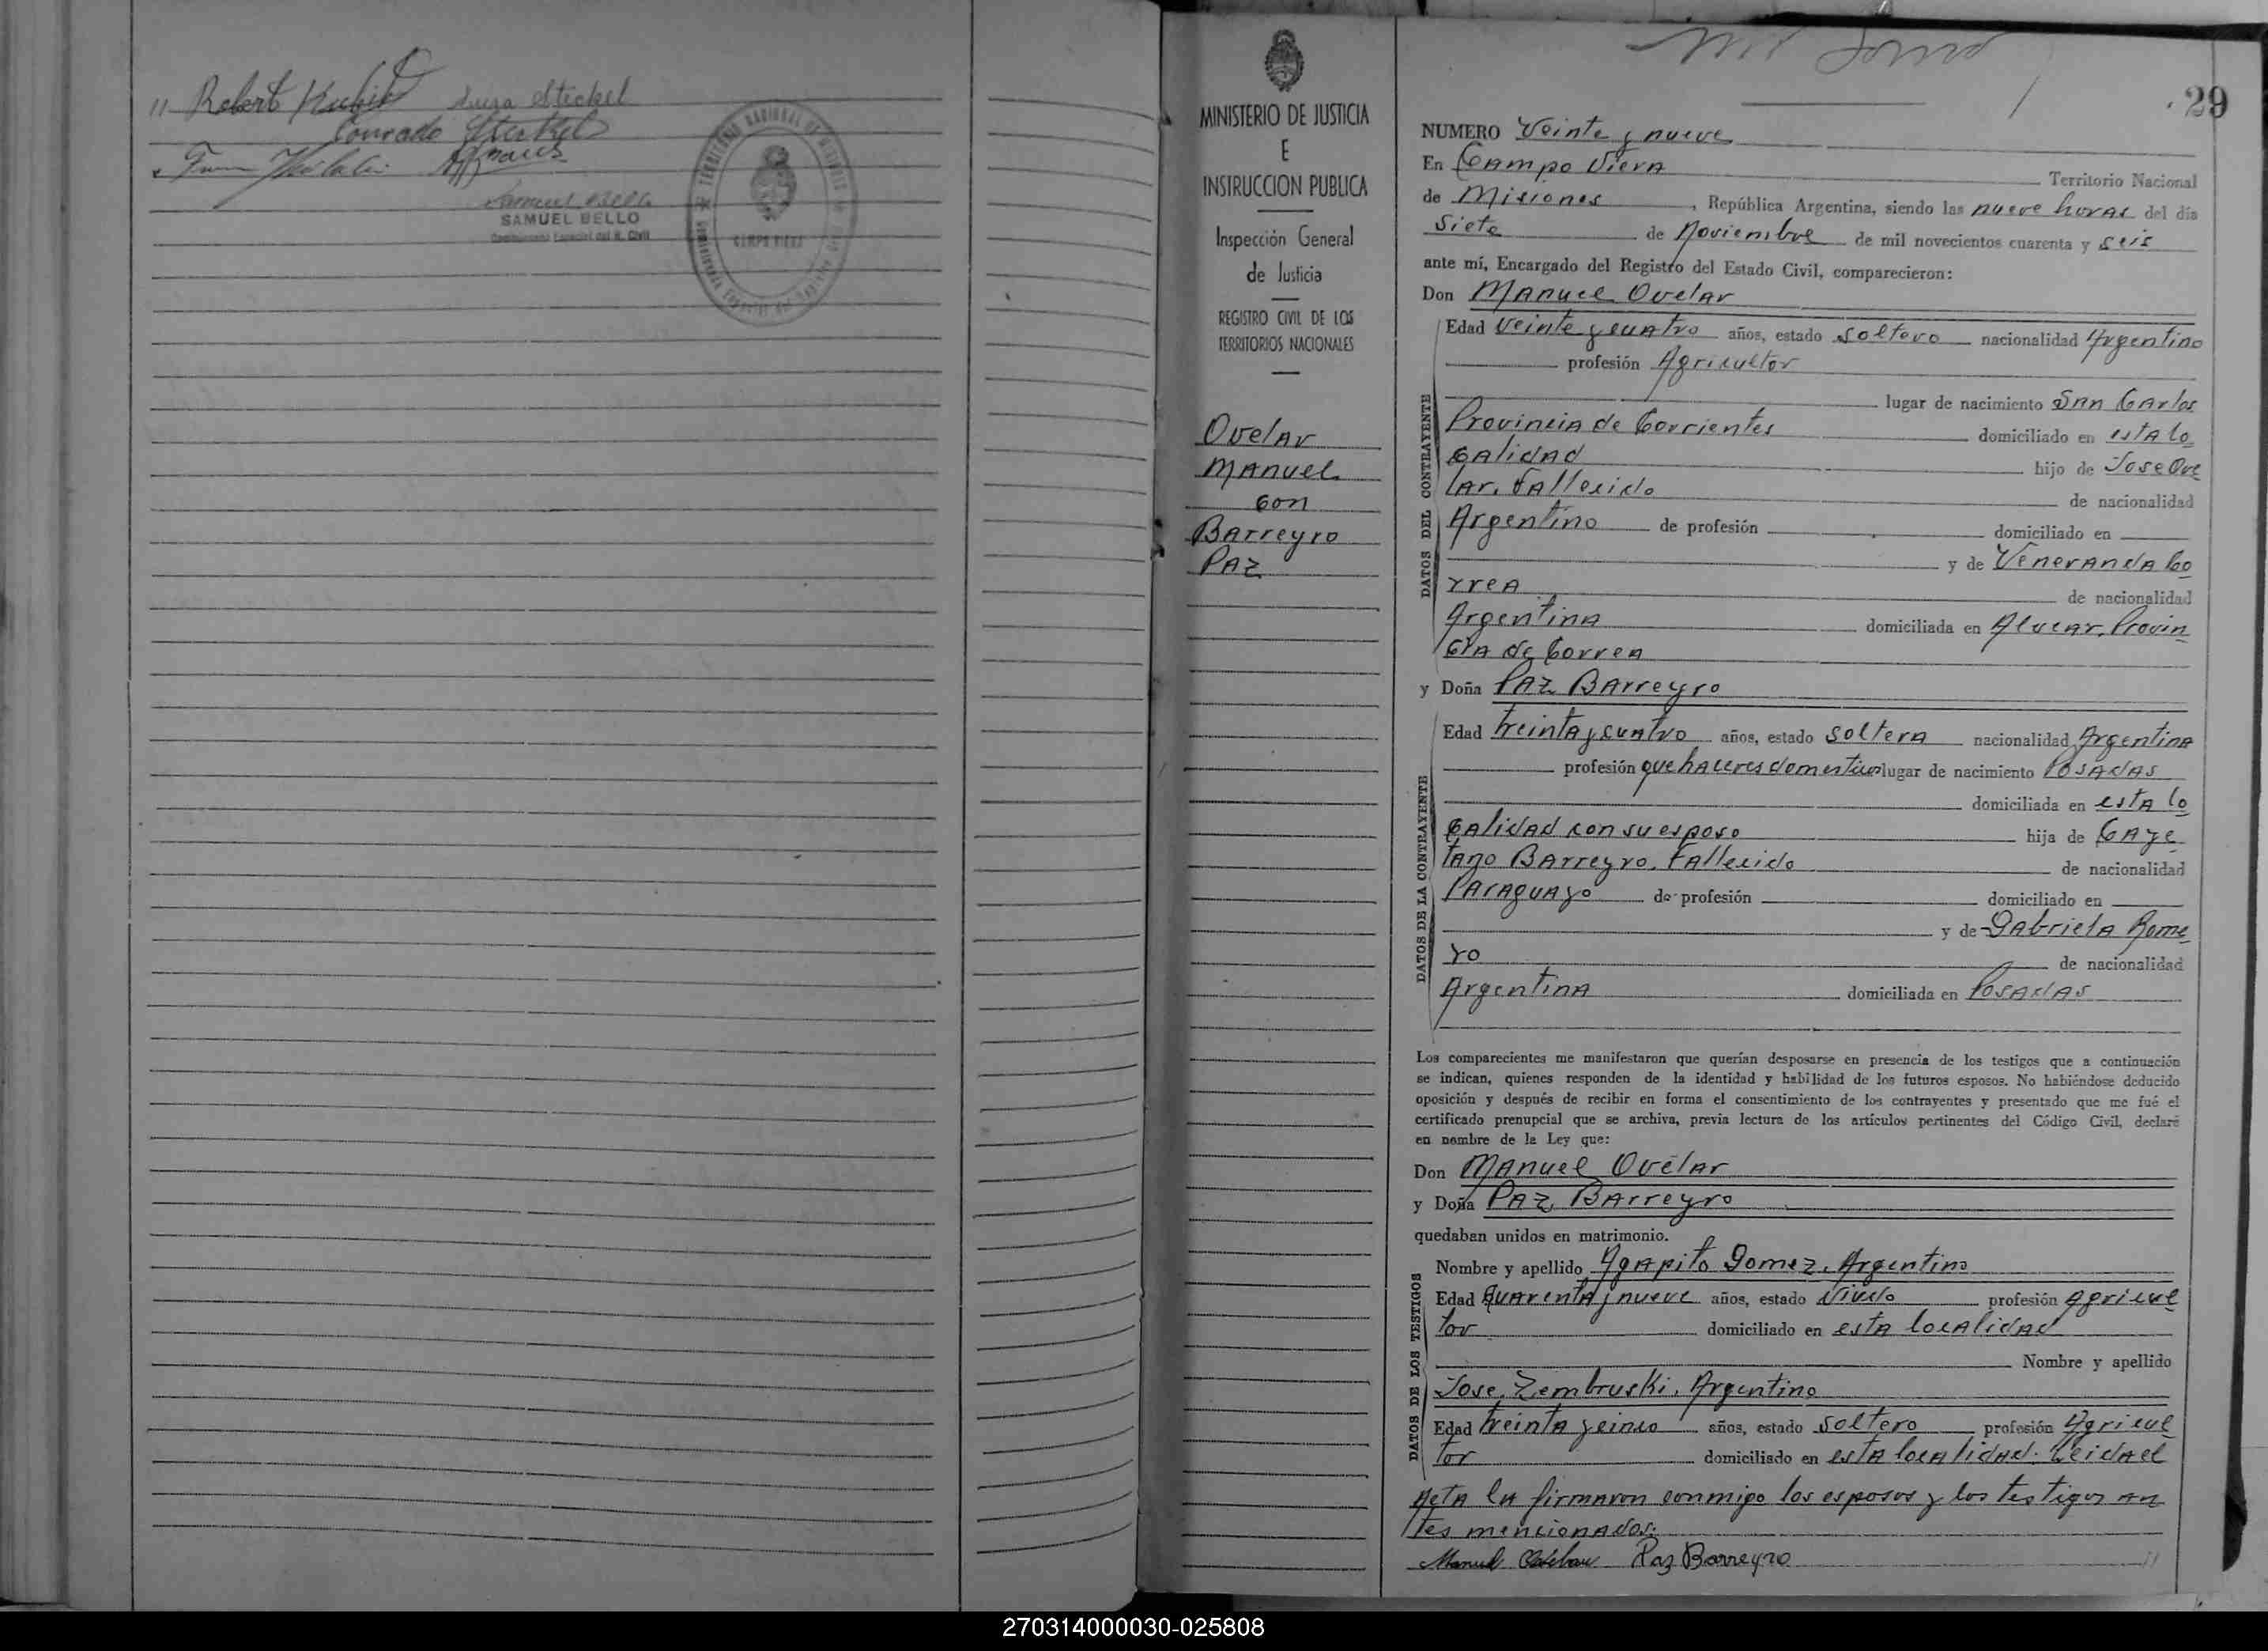 11 Robert Luza Steckel
Conrado Steckel
Samuel Bello
SAMUEL BELLO
CAMPO VIERA
MINISTERIO DE JUSTICIA
E
INSTRUCCION PUBLICA
Inspección General
de Justicia
REGISTRO CIVIL DE LOS
TERRITORIOS NACIONALES
Ovelar
Manuel
con
Barreyro
Paz
29
NUMERO Veinte y nueve
En Campo Viera Territorio Nacional
de Misiones, República Argentina, siendo las nueve horas del día
siete de Noviembre de mil novecientos cuarenta y seis
ante mí, Encargado del Registro del Estado Civil, comparecieron:
Don Manuel Ovelar
DATOS DEL CONTRAYENTE
Edad veinte y cuatro años, estado soltero nacionalidad Argentino
profesión Agricultor
lugar de nacimiento San Carlos
Provincia de Corrientes domiciliado en esta lo
calidad hijo de Jose Ove
lar. Fallecido de nacionalidad
Argentino de profesión domiciliado en
y de Veneranda Co
rrea de nacionalidad
Argentina domiciliada en Alvear. Provin
cia de Correa
y Doña Paz Barreyro
DATOS DE LA CONTRAYENTE
Edad treinta y cuatro años, estado soltera nacionalidad Argentina
profesión quehaceres domesticos lugar de nacimiento Posadas
domiciliada en esta lo
calidad con su esposo hija de Caye
tano Barreyro. Fallecido de nacionalidad
Paraguayo de profesión domiciliado en
y de Gabriela Rome
ro de nacionalidad
Argentina domiciliada en Posadas
Los comparecientes me manifestaron que querían desposarse en presencia de los testigos que a continuación
se indican, quienes responden de la identidad y habilidad de los futuros esposos. No habiéndose deducido
oposición y después de recibir en forma el consentimiento de los contrayentes y presentado que me fué el
certificado prenupcial que se archiva, previa lectura de los artículos pertinentes del Código Civil, declaré
en nombre de la Ley que:
Don Manuel Ovelar
y Doña Paz Barreyro
quedaban unidos en matrimonio.
DATOS DE LOS TESTIGOS
Nombre y apellido Agapito Gomez. Argentino
Edad Cuarenta y nueve años, estado viudo profesión Agricul
tor domiciliado en esta localidad
Nombre y apellido
Jose Zembruski. Argentino
Edad treinta y cinco años, estado soltero profesión Agricul
tor domiciliado en esta localidad. Leida el
acta la firmaron conmigo los esposos y los testigos an
tes mencionados.
Manuel Paz Barreyro 11
270314000030-025808